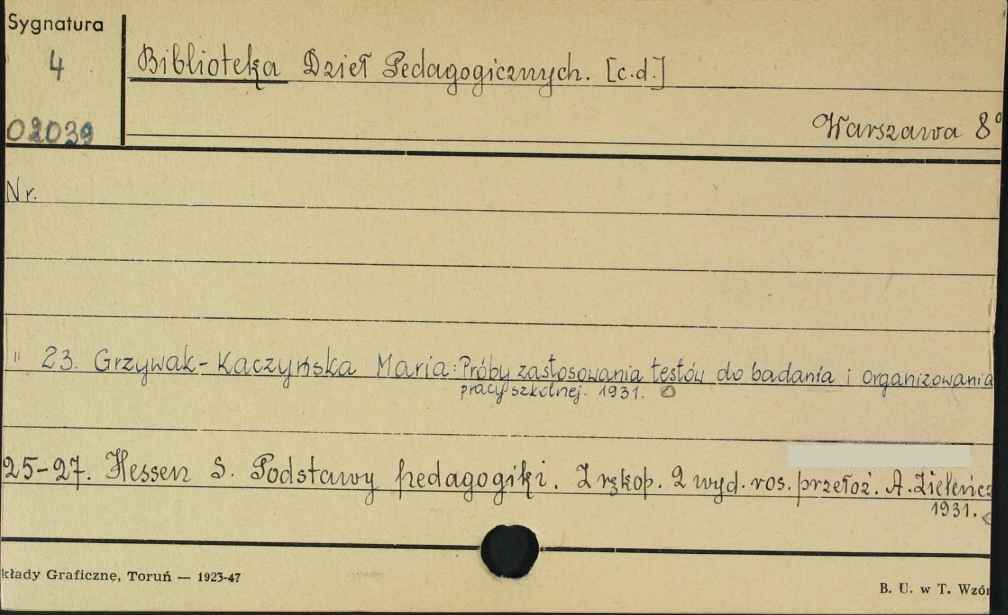 Sygnatura
4
02039
Biblioteka Dzieł Pedagogicznych. [c.d.]
Warszawa 8°
Nr.
" 23. Grzywak-Kaczyńska Maria: Próby zastosowania testów do badania i organizowania
pracy szkolnej. 1931.
25-27. Hessen S. Podstawy pedagogiki. Z rękop. 2 wyd. ros. przełoż. A. Zieleńcz
1931.
kłady Graficzne, Toruń — 1923-47
B. U. w T. Wzór